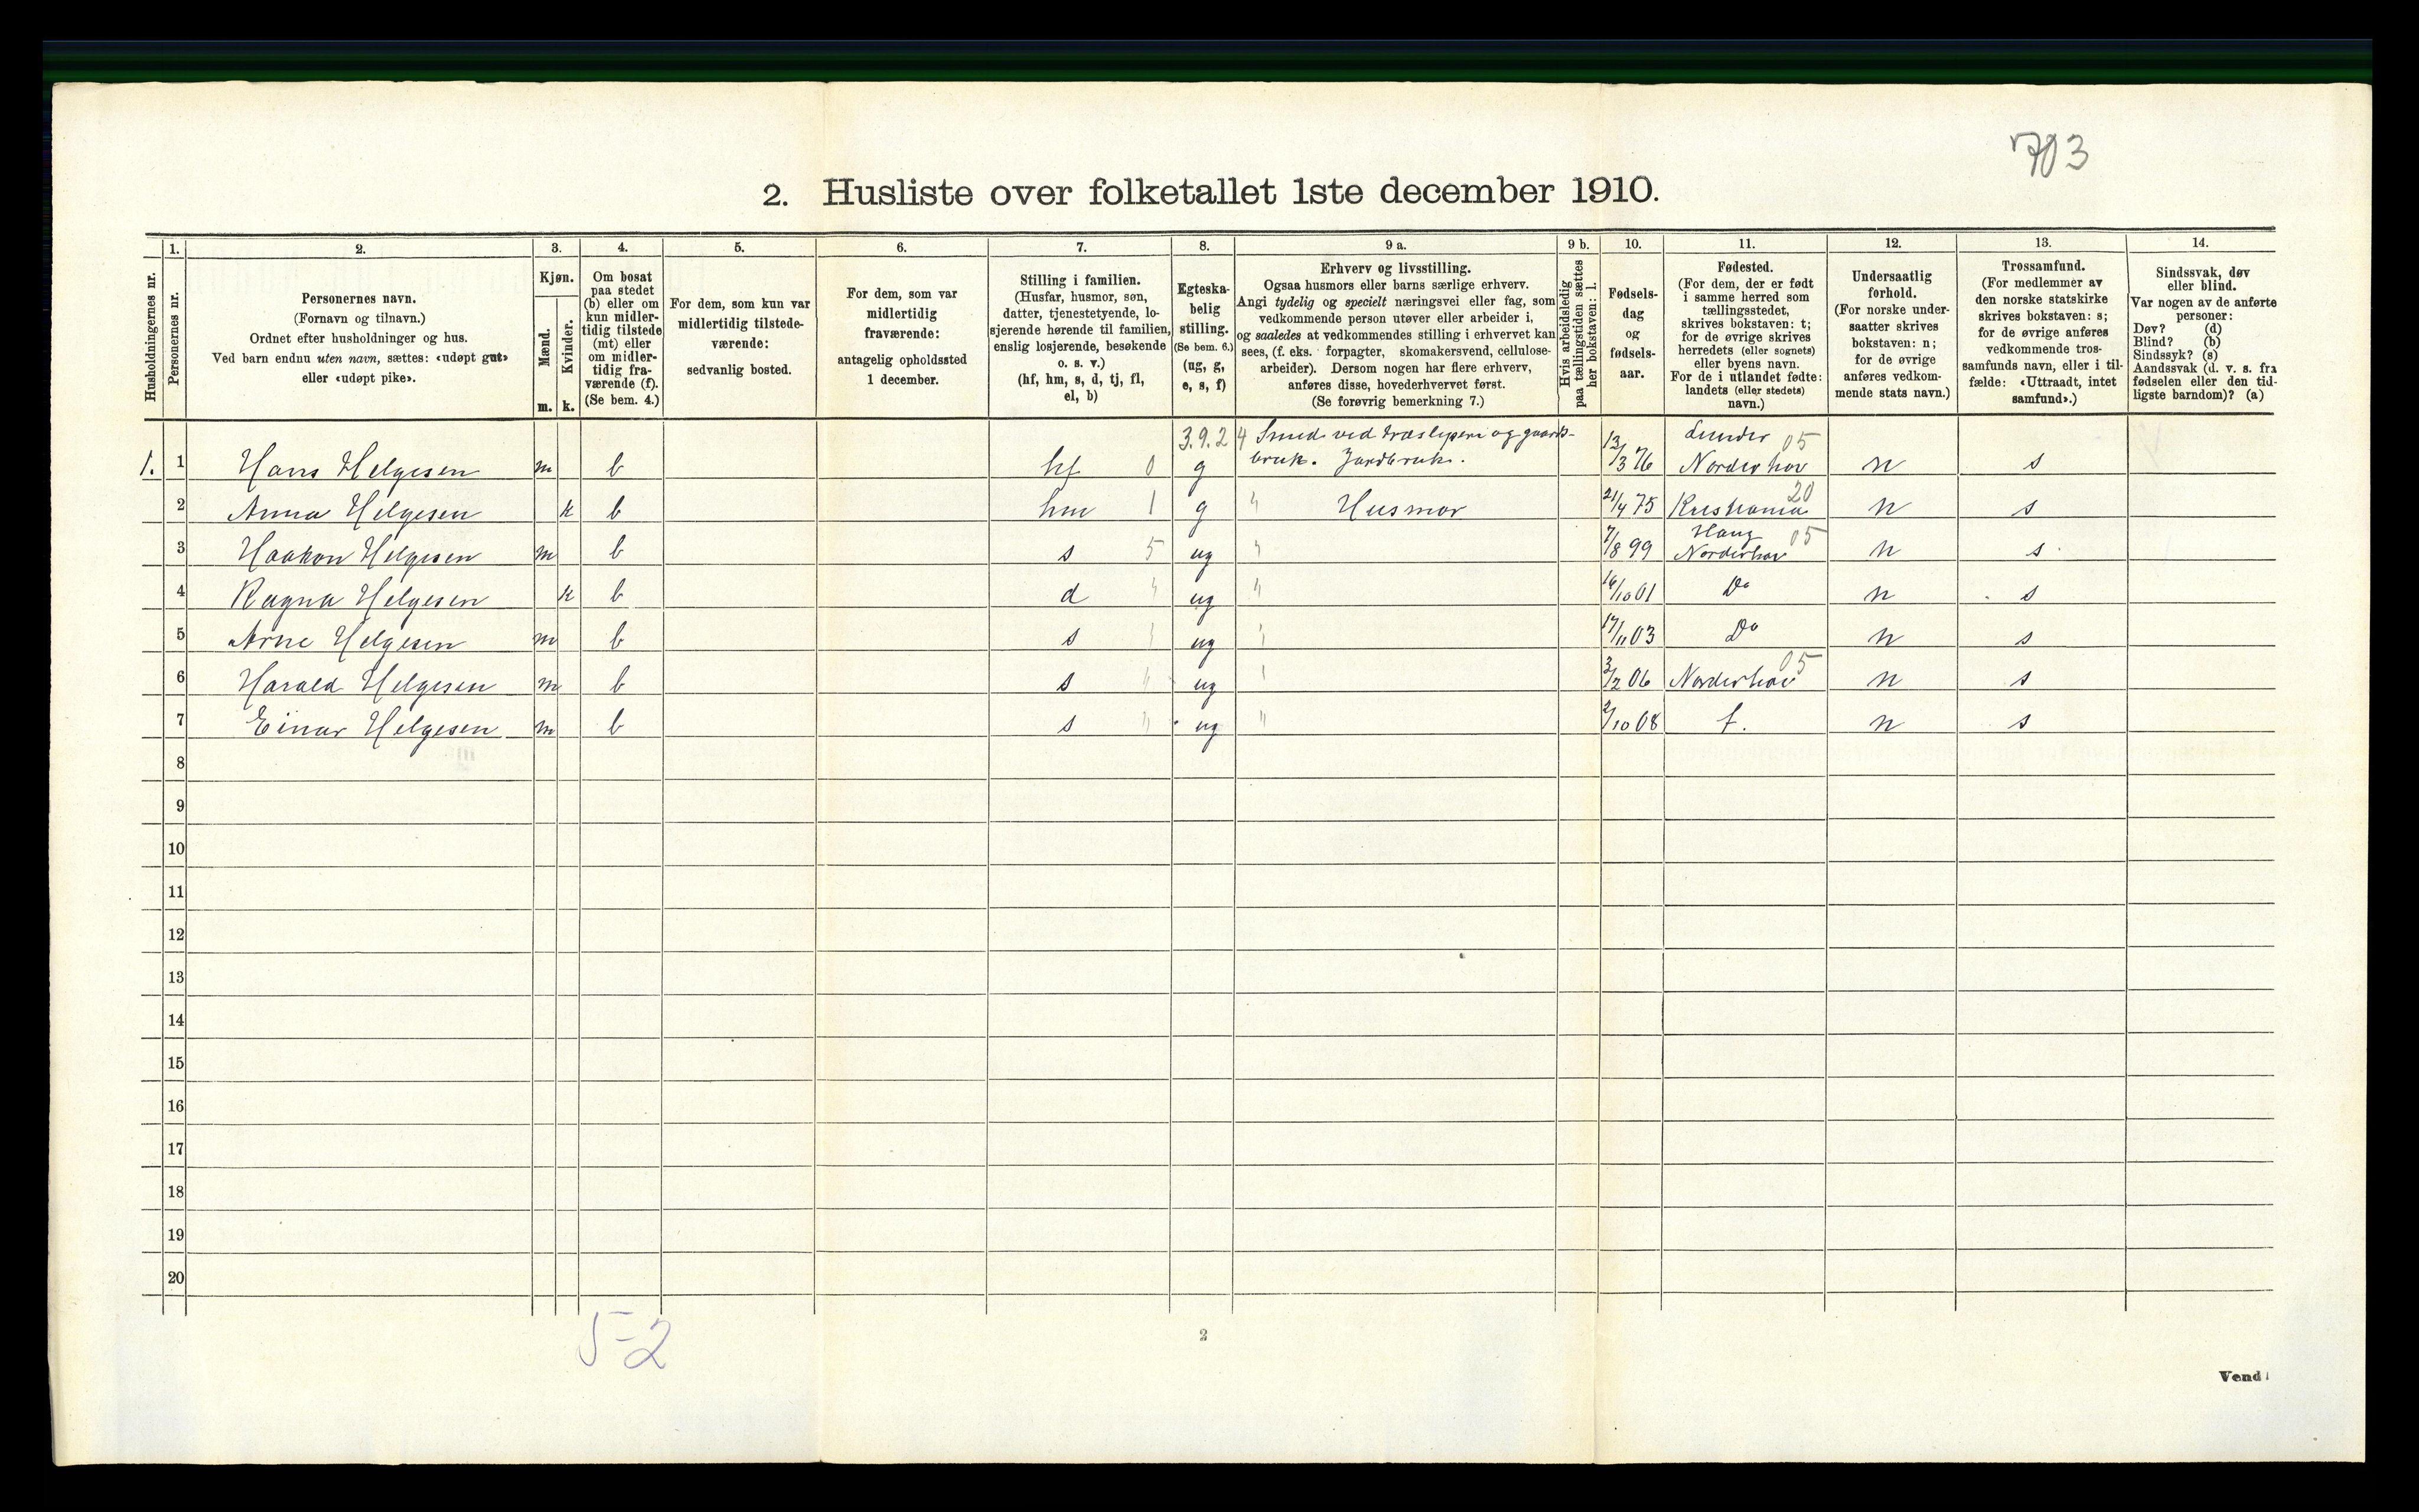 703
2. Husliste over folketallet 1ste december 1910.
Husholdningernes nr.
1.
Personernes nr.
2.
Personernes navn.
(Fornavn og tilnavn.)
Ordnet efter husholdninger og hus.
Ved barn endnu uten navn, sættes: «udøpt gut»
eller «udøpt pike».
3.
Kjøn.
Mænd.
Kvinder.
m. k.
4.
Om bosat
paa stedet
(b) eller om
kun midler-
tidig tilstede
(mt) eller
om midler-
tidig fra-
værende (f).
(Se bem. 4.)
5.
For dem, som kun var
midlertidig tilstede-
værende:
sedvanlig bosted.
6.
For dem, som var
midlertidig
fraværende:
antagelig opholdssted
1 december.
7.
Stilling i familien.
(Husfar, husmor, søn,
datter, tjenestetyende, lo-
sjerende hørende til familien,
enslig losjerende, besøkende
o. s. v.)
(hf, hm, s, d, tj, fl,
el, b)
8.
Egteska-
belig
stilling.
(Se bem. 6.)
(ug, g,
e, s, f)
9 a.
Erhverv og livsstilling.
Ogsaa husmors eller barns særlige erhverv.
Angi tydelig og specielt næringsvei eller fag, som
vedkommende person utøver eller arbeider i,
og saaledes at vedkommendes stilling i erhvervet kan
sees, (f. eks. forpagter, skomakersvend, cellulose-
arbeider). Dersom nogen har flere erhverv,
anføres disse, hovederhvervet først.
(Se forøvrig bemerkning 7.)
9 b.
Hvis arbeidsledig
paa tællingstiden sættes
her bokstaven: l.
10.
Fødsels-
dag
og
fødsels-
aar.
11.
Fødested.
(For dem, der er født
i samme herred som
tællingsstedet,
skrives bokstaven: t;
for de øvrige skrives
herredets (eller sognets)
eller byens navn.
For de i utlandet fødte:
landets (eller stedets)
navn.)
12.
Undersaatlig
forhold.
(For norske under-
saatter skrives
bokstaven: n;
for de øvrige
anføres vedkom-
mende stats navn.)
13.
Trossamfund.
(For medlemmer av
den norske statskirke
skrives bokstaven: s;
for de øvrige anføres
vedkommende tros-
samfunds navn, eller i til-
fælde: «Uttraadt, intet
samfund».)
14.
Sindssvak, døv
eller blind.
Var nogen av de anførte
personer:
Døv? (d)
Blind? (b)
Sindssyk? (s)
Aandssvak (d. v. s. fra
fødselen eller den tid-
ligste barndom)? (a)
3.9.2 4 Smed ved træsliperi og gaards- Lunder 05
1. 1 Hans Helgesen m b hf 0 g bruk. Jordbruk. 13/3 76 Norderhov n s
2 Anna Helgesen k b hm 1 g " Husmor 21/4 75 Kristiania 20 n s
Haug 05
3 Haakon Helgesen m b s 5 ug " 7/8 99 Norderhov n s
4 Ragna Helgesen k b d " ug " 16/10 01 Do n s
5 Arne Helgesen m b s " ug " 17/11 03 Do n s
6 Harald Helgesen m b s " ug " 3/2 06 Norderhov 05 n s
7 Einar Helgesen m b s " ug " 2/10 08 t. n s
8
9
10
11
12
13
14
15
16
17
18
19
20
5-2
2
Vend!